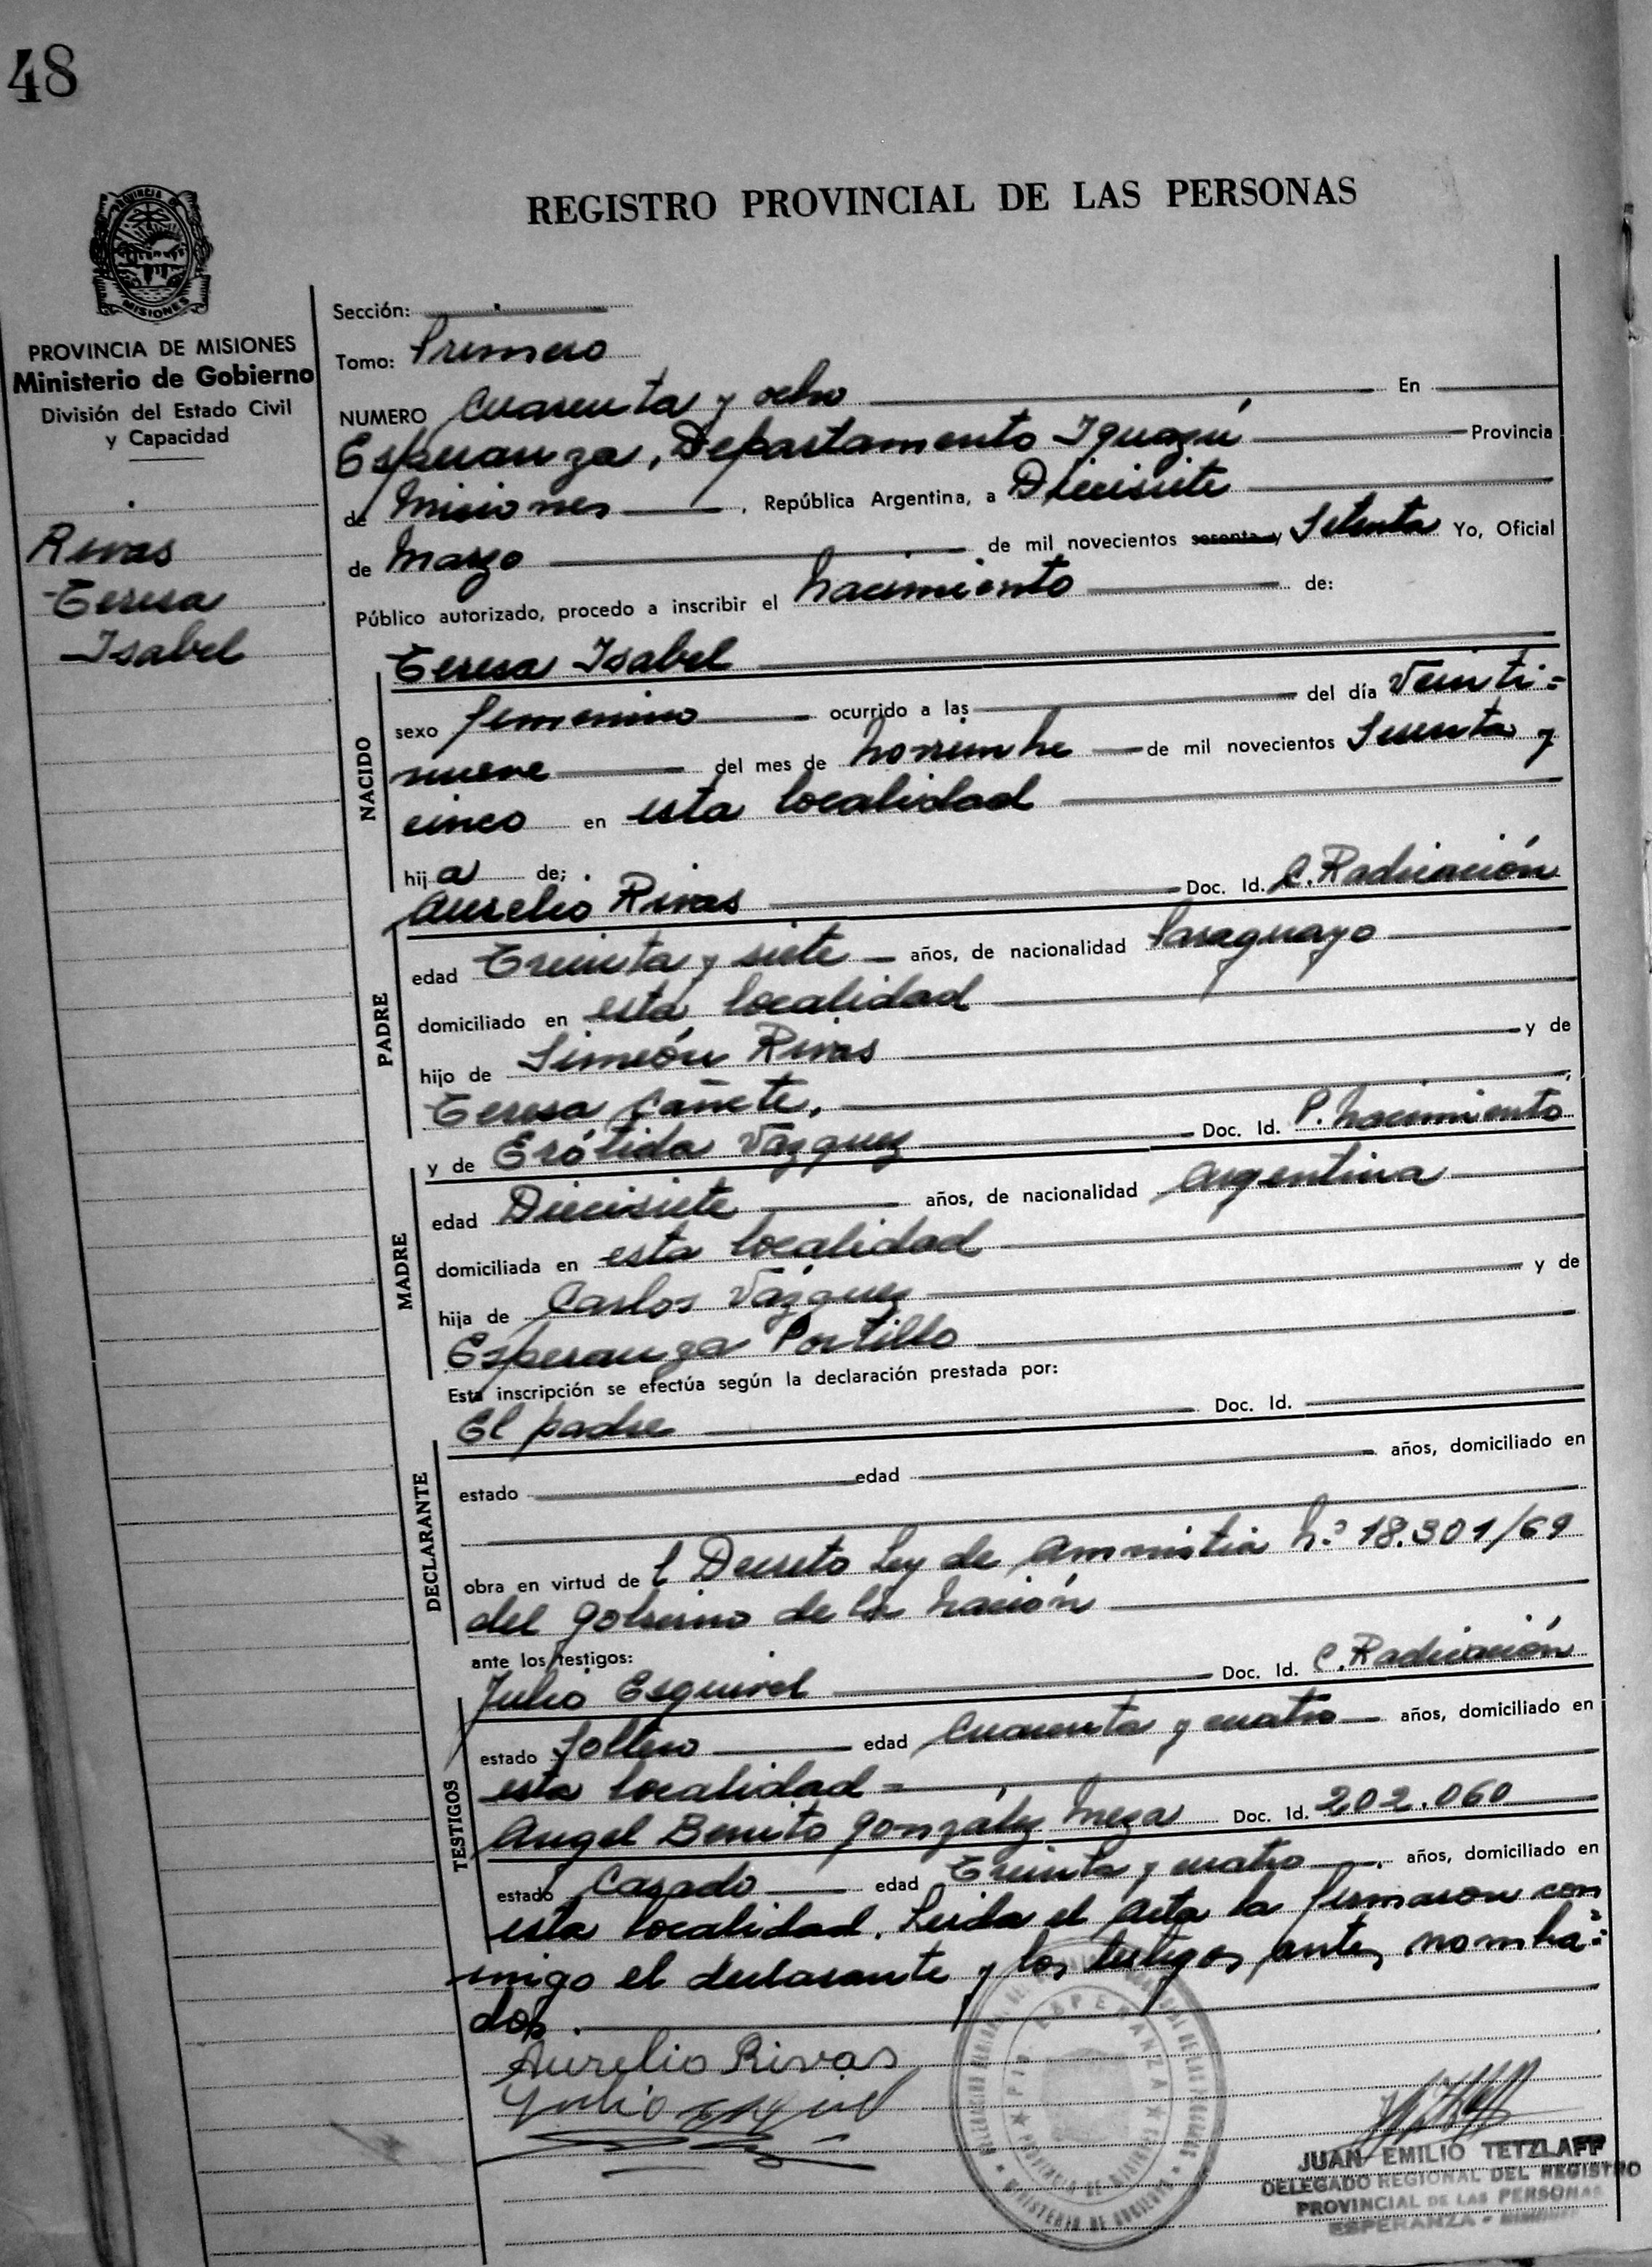 48
REGISTRO PROVINCIAL DE LAS PERSONAS
PROVINCIA DE
MISIONES
PROVINCIA DE MISIONES
Ministerio de Gobierno
División del Estado Civil
y Capacidad
Rivas
Teresa
Isabel
Sección:
Tomo: Primero
NUMERO Cuarenta y ocho En
Esperanza, Departamento Iguazú Provincia
de Misiones , República Argentina, a Diecisiete
de Marzo de mil novecientos sesenta y Setenta Yo, Oficial
Público autorizado, procedo a inscribir el nacimiento de:
NACIDO
Teresa Isabel
sexo femenino ocurrido a las del día Veinti=
nueve del mes de noviembre de mil novecientos Sesenta y
cinco en esta localidad
hija de;
PADRE
Aurelio Rivas Doc. Id. C. Radicación
edad Treinta y siete años, de nacionalidad Paraguayo
domiciliado en esta localidad
hijo de Simeón Rivas y de
Teresa Cañete.
MADRE
y de Erótida Vázquez Doc. Id. P. nacimiento
edad Diecisiete años, de nacionalidad Argentina
domiciliada en esta localidad
hija de Carlos Vázquez y de
Esperanza Portillo
Esta inscripción se efectúa según la declaración prestada por:
DECLARANTE
El padre Doc. Id.
estado edad años, domiciliado en
obra en virtud de l Decreto Ley de Amnistía N.º 18.301/69
del gobierno de la Nación
ante los testigos:
TESTIGOS
Julio Esquivel Doc. Id. C. Radicación
estado Soltero edad Cuarenta y cuatro años, domiciliado en
esta localidad =
Angel Benito González Meza Doc. Id. 202.060
estado Casado edad Treinta y cuatro años, domiciliado en
esta localidad. Leída el Acta la firmaron con
migo el declarante y los testigos antes nombra=
dos.
Aurelio Rivas
Julio Esquivel
ESPERANZA
PROVINCIA DE MISIONES
MINISTERIO DE GOBIERNO
JUAN EMILIO TETZLAFF
DELEGADO REGIONAL DEL REGISTRO
PROVINCIAL DE LAS PERSONAS
ESPERANZA - MISIONES